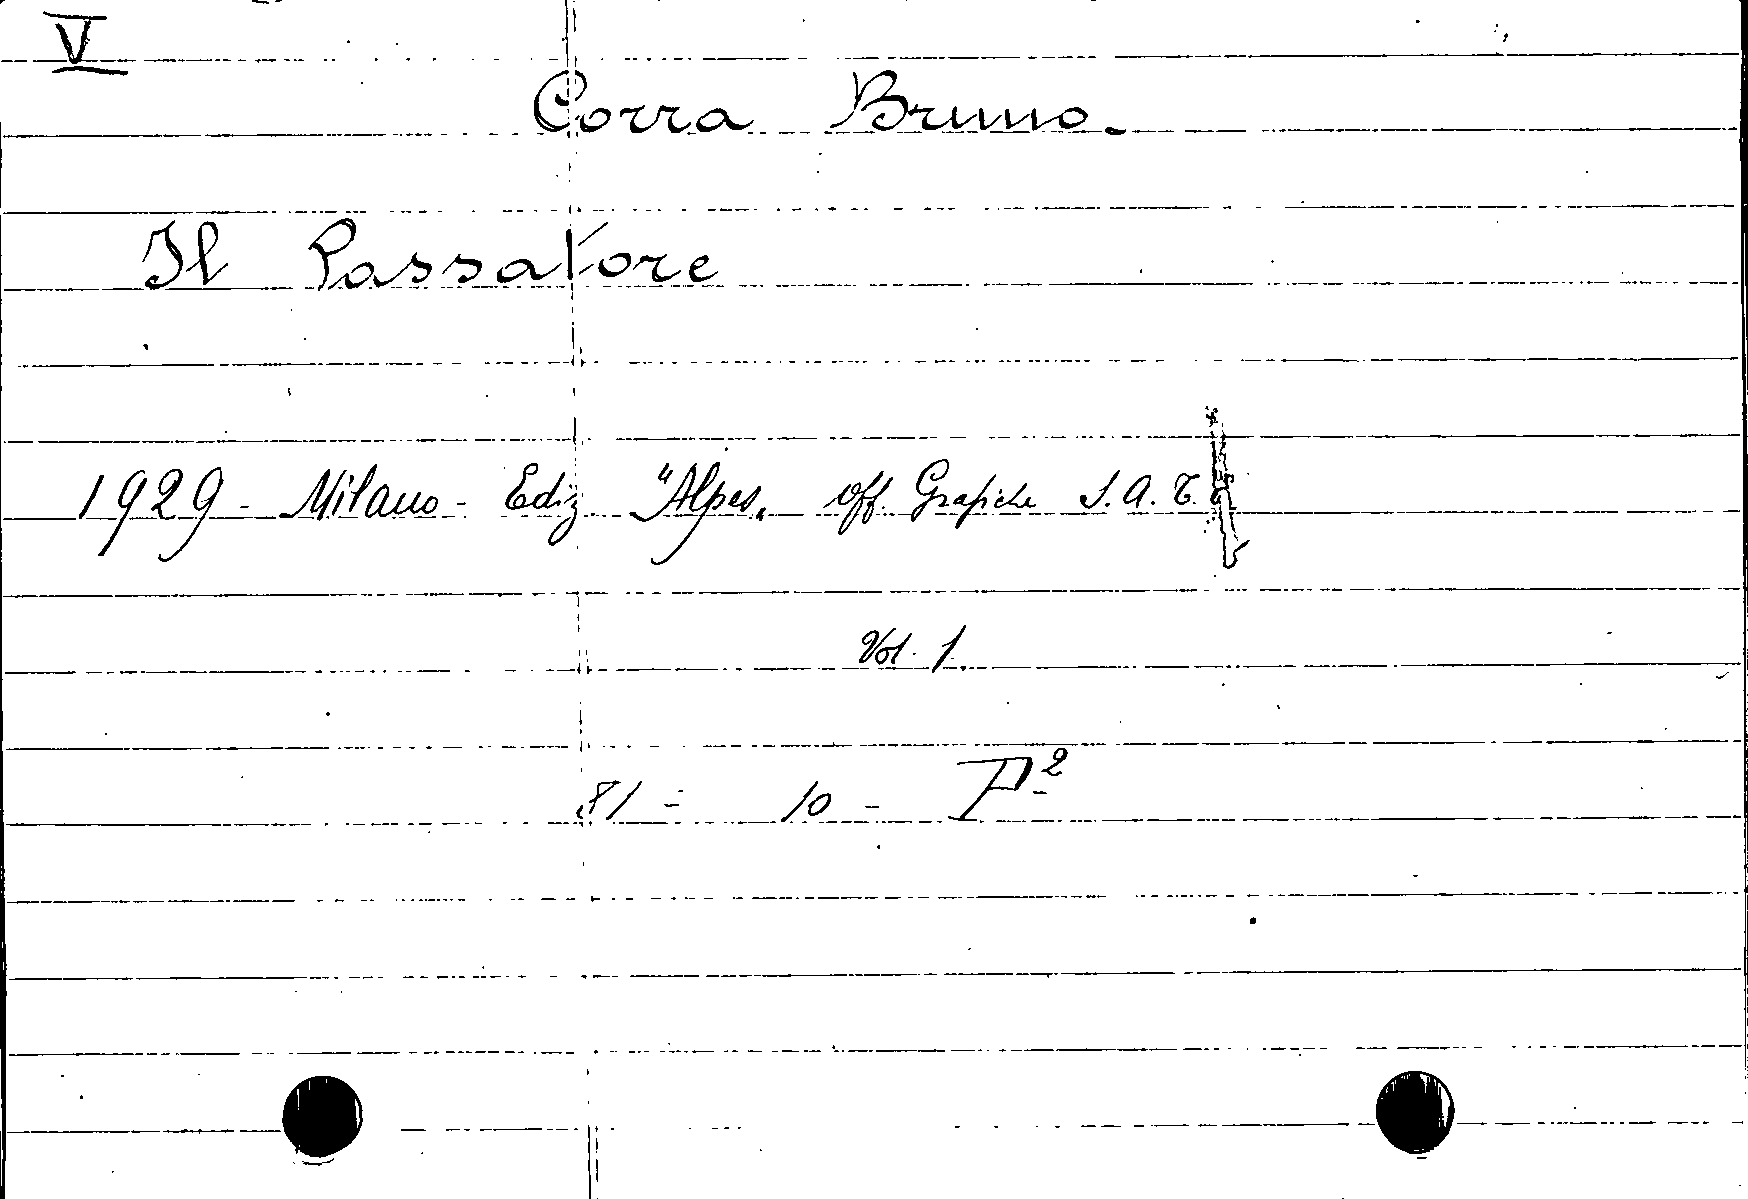 V
Corra Bruno.
Il Passatore
1929 - Milano - Ediz. "Alpes„ Off. Grafiche S.A.T.
Vol. 1.
81 = 10 - P²